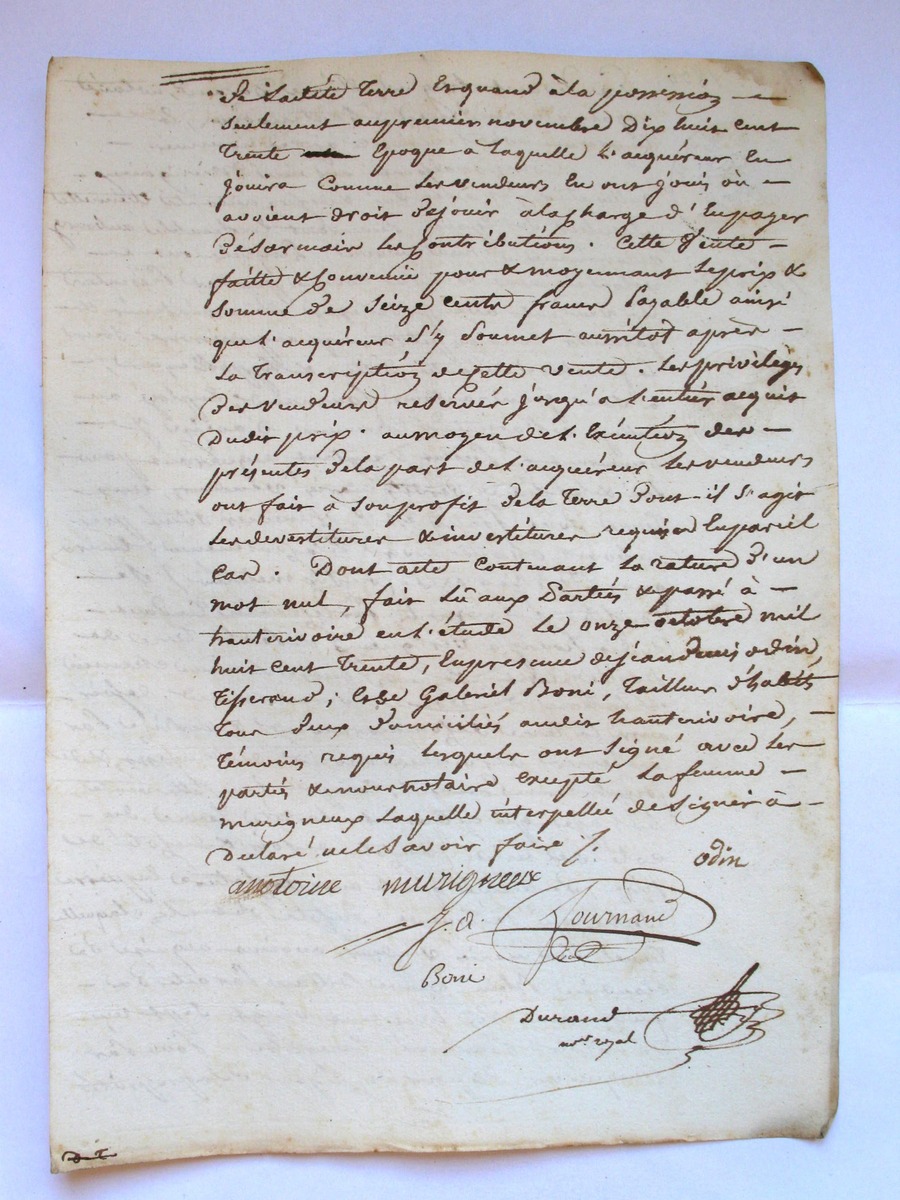 de ladite Terre Et quand à la possession —
seulement au premier novembre Dix huit cent
Trente Epoque a laquelle L'acquéreur En
jouira Comme Les vendeurs En ont joui où —
avoient droit dejouir àla charge d'En payer
Désormais les Contributions. Cette Vente —
faitte & Convenüe pour & moyennant Le prix &
Somme de Seize cents francs payable ainsi
que L'acquéreur S'y Soumet aussitot après —
La Transcription de cette vente. Les privilèges
des Vendeurs reservés jusqu'a L'entier acquit
Dudit prix. au moyen de L'Exécution des —
présentes de la part de L'acquéreur Les vendeurs
ont fait à Son profit de la Terre Dont il S'agit
Les devestitures & investitures requises En pareil
Cas. Dont acte Contenant La rature d'un
mot nul, fait Lû aux Parties & passé à —
hauterivoire en L'étude Le onze octobre mil
huit Cent Trente, En presence de jean odin,
Tisserand; Et de Gabriel Boni, Tailleur d'habits
Tous deux domiciliés audit hauterivoire, —
Témoins requis Lesquels ont Signé avec Les
parties & nous notaire excepté La femme —
murigneux Laquelle interpellée de Signer à —
Déclaré ne le Savoir faire /.
odin
antoine murigneux
j. a. Fournand
Boni
Durand
nore royal
D T